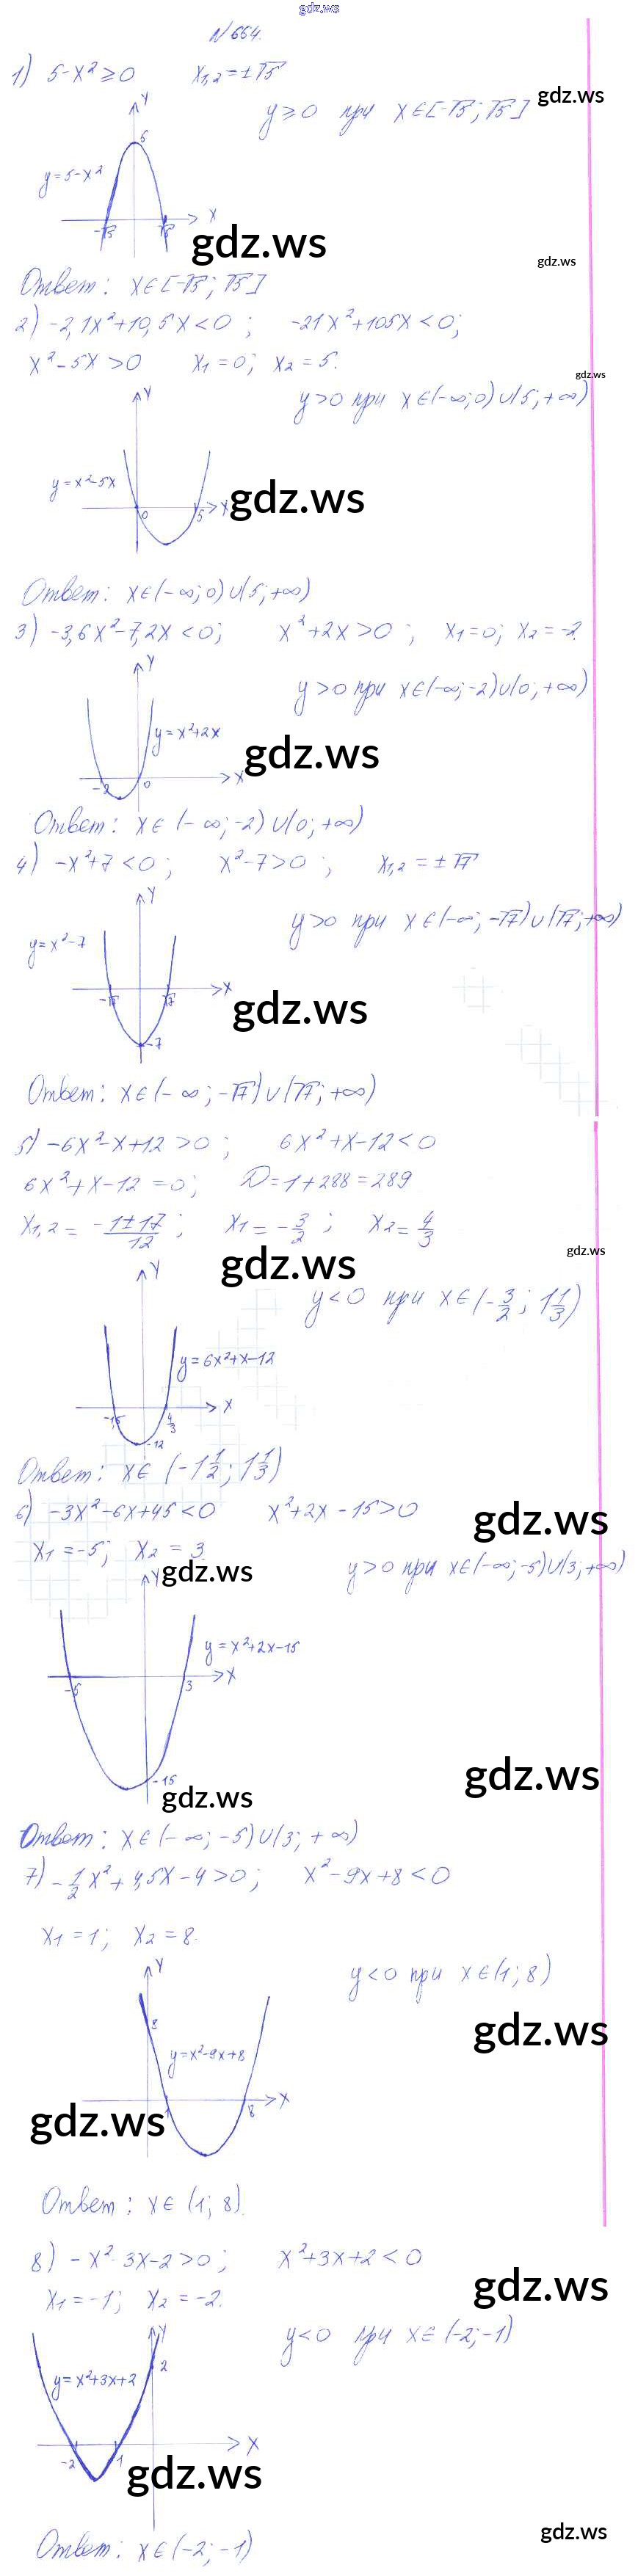 gdz.ws
N 664.
1) 5-x² ≥ 0 x₁,₂ = ±√5
gdz.ws
y ≥ 0 при x∈[-√5; √5]
y
5
y = 5-x²
-√5 √5 x
gdz.ws
gdz.ws
Ответ: x∈[-√5; √5]
2) -2,1x²+10,5x<0; -21x²+105x<0;
x²-5x>0 x₁=0; x₂=5.
gdz.ws
y>0 при x∈(-∞;0)∪(5;+∞)
y
y = x²-5x
0 5 x
gdz.ws
Ответ: x∈(-∞;0)∪(5;+∞)
3) -3,6x²-7,2x<0; x²+2x>0; x₁=0; x₂=-2.
y
y>0 при x∈(-∞;-2)∪(0;+∞)
y = x²+2x
gdz.ws
-2 0 x
Ответ: x∈(-∞;-2)∪(0;+∞)
4) -x²+7<0; x²-7>0; x₁,₂=±√7
y
y>0 при x∈(-∞;-√7)∪(√7;+∞)
y = x²-7
-√7 √7 x
gdz.ws
-7
Ответ: x∈(-∞;-√7)∪(√7;+∞)
5) -6x²-x+12>0; 6x²+x-12<0
6x²+x-12=0; D=1+288=289
x₁,₂ = (-1±17)/12; x₁ = -3/2; x₂ = 4/3
gdz.ws
gdz.ws
y
y<0 при x∈(-3/2; 1 1/3)
y = 6x²+x-12
-1,5 4/3 x
-12
Ответ: x∈(-1 1/2; 1 1/3)
6) -3x²-6x+45<0 x²+2x-15>0
gdz.ws
x₁=-5; x₂=3.
gdz.ws
y>0 при x∈(-∞;-5)∪(3;+∞)
y
y = x²+2x-15
-5 3 x
-15
gdz.ws
gdz.ws
Ответ: x∈(-∞;-5)∪(3;+∞)
7) -1/2x²+4,5x-4>0; x²-9x+8<0
x₁=1; x₂=8.
y
y<0 при x∈(1;8)
8
y = x²-9x+8
gdz.ws
1 8 x
gdz.ws
Ответ: x∈(1;8).
8) -x²-3x-2>0; x²+3x+2<0
gdz.ws
x₁=-1; x₂=-2.
y
y<0 при x∈(-2;-1)
2
y = x²+3x+2
-2 -1 x
gdz.ws
gdz.ws
Ответ: x∈(-2;-1)